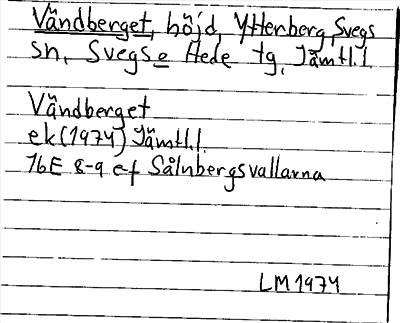 Vändberget, höjd, Ytterberg, Svegs
sn, Svegs o Hede tg, Jämtl.l.
Vändberget
ek (1974) Jämtl.l.
16E 8-9 e-f Sålnbergsvallarna
LM 1974